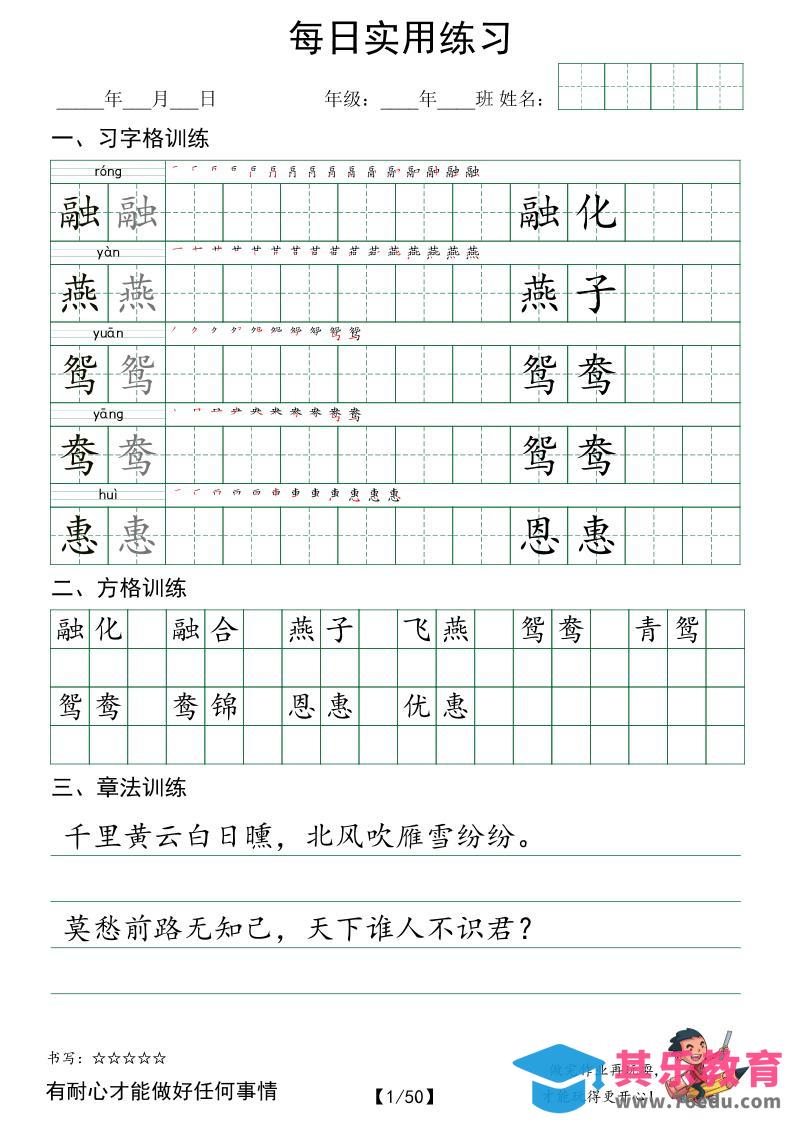 每日实用练习
_____年___月___日 年级：____年____班 姓名：
一、习字格训练
róng
融 融 融 化
yàn
燕 燕 燕 子
yuān
鸳 鸳 鸳 鸯
yāng
鸯 鸯 鸳 鸯
huì
惠 惠 恩 惠
二、方格训练
融化 融合 燕子 飞燕 鸳鸯 青鸳
鸳鸯 鸯锦 恩惠 优惠
三、章法训练
千里黄云白日曛，北风吹雁雪纷纷。
莫愁前路无知己，天下谁人不识君？
书写：☆☆☆☆☆
有耐心才能做好任何事情
【1/50】
做完作业再玩耍，
才能玩得更开心！
其乐教育
www.76edu.com